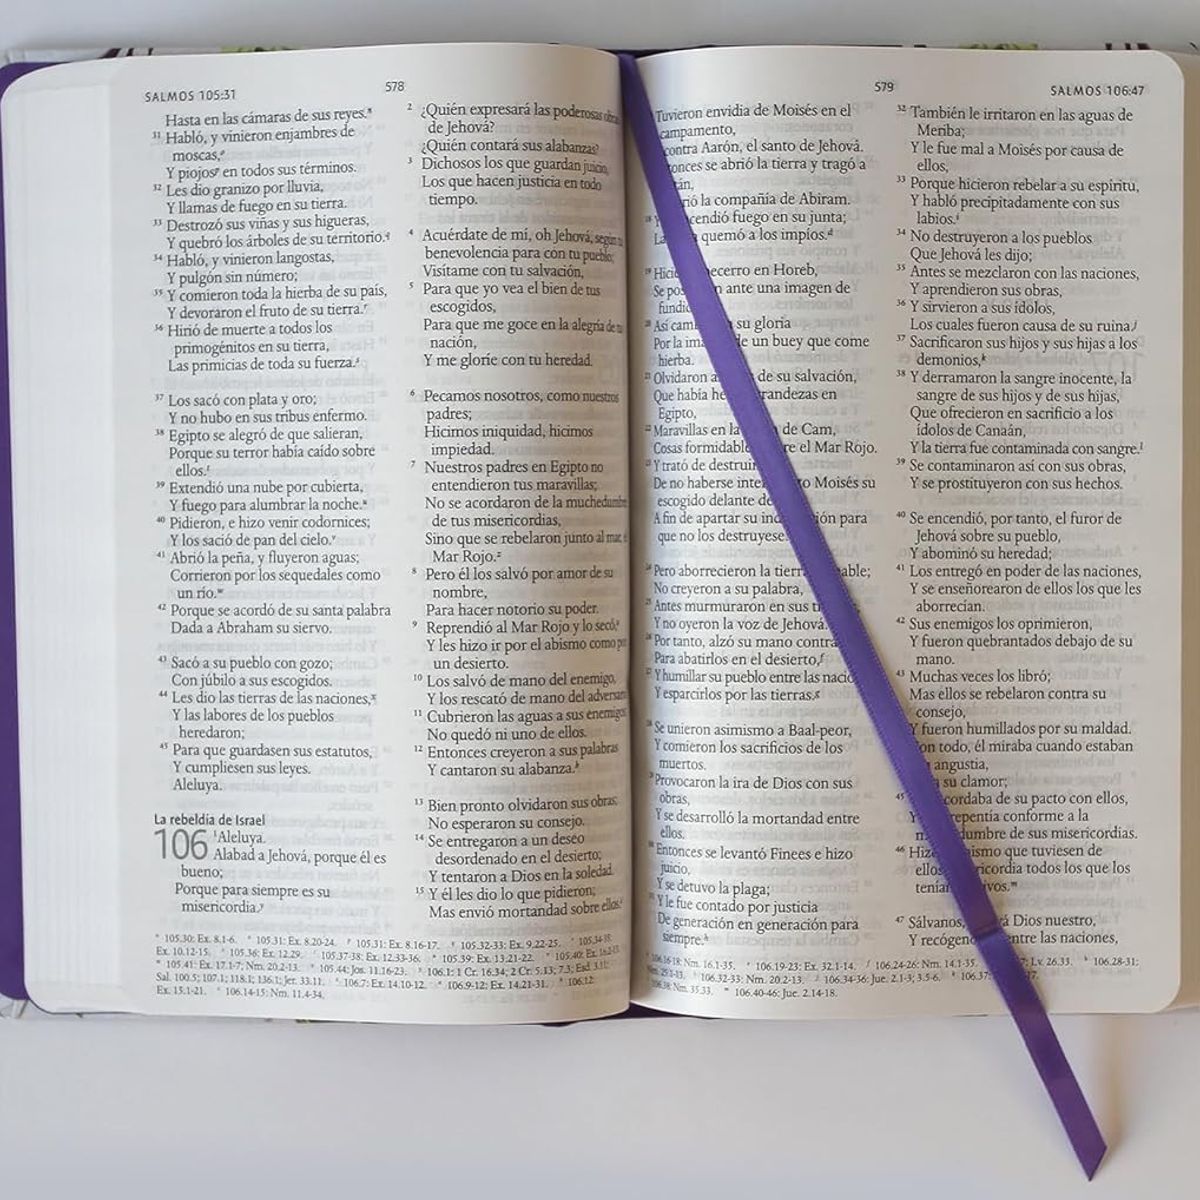 SALMOS 105:31
578
Hasta en las cámaras de sus reyes.
31 Habló, y vinieron enjambres de
moscas,
Y piojos en todos sus términos.
32 Les dio granizo por lluvia,
Y llamas de fuego en su tierra.
33 Destrozó sus viñas y sus higueras,
Y quebró los árboles de su territorio.q
34 Habló, y vinieron langostas,
Y pulgón sin número;
35 Y comieron toda la hierba de su país,
Y devoraron el fruto de su tierra.r
36 Hirió de muerte a todos los
primogénitos en su tierra,
Las primicias de toda su fuerza.s
37 Los sacó con plata y oro;
Y no hubo en sus tribus enfermo.
38 Egipto se alegró de que salieran,
Porque su terror había caído sobre
ellos.t
39 Extendió una nube por cubierta,
Y fuego para alumbrar la noche.u
40 Pidieron, e hizo venir codornices;
Y los sació de pan del cielo.v
41 Abrió la peña, y fluyeron aguas;
Corrieron por los sequedales como
un río.w
42 Porque se acordó de su santa palabra
Dada a Abraham su siervo.
43 Sacó a su pueblo con gozo;
Con júbilo a sus escogidos.
44 Les dio las tierras de las naciones,x
Y las labores de los pueblos
heredaron;
45 Para que guardasen sus estatutos,
Y cumpliesen sus leyes.
Aleluya.
La rebeldía de Israel
106 1Aleluya.
Alabad a Jehová, porque él es
bueno;
Porque para siempre es su
misericordia.y
2 ¿Quién expresará las poderosas obras
de Jehová?
¿Quién contará sus alabanzas?
3 Dichosos los que guardan juicio,
Los que hacen justicia en todo
tiempo.
4 Acuérdate de mí, oh Jehová, según tu
benevolencia para con tu pueblo;
Visítame con tu salvación,
5 Para que yo vea el bien de tus
escogidos,
Para que me goce en la alegría de tu
nación,
Y me gloríe con tu heredad.
6 Pecamos nosotros, como nuestros
padres;
Hicimos iniquidad, hicimos
impiedad.
7 Nuestros padres en Egipto no
entendieron tus maravillas;
No se acordaron de la muchedumbre
de tus misericordias,
Sino que se rebelaron junto al mar, el
Mar Rojo.z
8 Pero él los salvó por amor de su
nombre,
Para hacer notorio su poder.
9 Reprendió al Mar Rojo y lo secó,a
Y les hizo ir por el abismo como por
un desierto.
10 Los salvó de mano del enemigo,
Y los rescató de mano del adversario.
11 Cubrieron las aguas a sus enemigos;
No quedó ni uno de ellos.
12 Entonces creyeron a sus palabras
Y cantaron su alabanza.b
13 Bien pronto olvidaron sus obras;
No esperaron su consejo.
14 Se entregaron a un deseo
desordenado en el desierto;
Y tentaron a Dios en la soledad.
15 Y él les dio lo que pidieron;
Mas envió mortandad sobre ellos.c
105.30: Ex. 8.1-6. 105.31: Ex. 8.20-24. 105.31: Ex. 8.16-17. 105.32-33: Ex. 9.22-25. 105.34-35:
Ex. 10.12-15. 105.36: Ex. 12.29. 105.37-38: Ex. 12.33-36. 105.39: Ex. 13.21-22. 105.40: Ex. 16.2-15.
105.41: Ex. 17.1-7; Nm. 20.2-13. 105.44: Jos. 11.16-23. 106.1: 1 Cr. 16.34; 2 Cr. 5.13; 7.3; Esd. 3.11;
Sal. 100.5; 107.1; 118.1; 136.1; Jer. 33.11. 106.7: Ex. 14.10-12. 106.9-12: Ex. 14.21-31. 106.12:
Ex. 15.1-21. 106.14-15: Nm. 11.4-34.
579
SALMOS 106:47
Tuvieron envidia de Moisés en el
campamento,
contra Aarón, el santo de Jehová.
se abrió la tierra y tragó a
la compañía de Abiram.
fuego en su junta;
quemó a los impíos.d
19 becerro en Horeb,
Se ante una imagen de
20 Así su gloria
Por la de un buey que come
hierba.
21 Olvidaron de su salvación,
Que había
Egipto,
22 Maravillas en la de Cam,
Cosas el Mar Rojo.
23 Y trató de
De no haberse Moisés su
escogido delante de
A fin de apartar su para
que no los destruyese.
24 Pero aborrecieron la
No creyeron a su palabra,
25 Antes murmuraron en sus
Y no oyeron la voz de Jehová.
26 Por tanto, alzó su mano contra
Para abatirlos en el desierto,f
27 Y humillar su pueblo entre las
Y esparcirlos por las tierras.g
28 Se unieron asimismo a Baal-peor,
Y comieron los sacrificios de los
muertos.
29 Provocaron la ira de Dios con sus
obras,
Y se desarrolló la mortandad entre
ellos.
30 Entonces se levantó Finees e hizo
juicio,
Y se detuvo la plaga;
31 Y le fue contado por justicia
De generación en generación para
siempre.h
32 También le irritaron en las aguas de
Meriba;
Y le fue mal a Moisés por causa de
ellos,
33 Porque hicieron rebelar a su espíritu,
Y habló precipitadamente con sus
labios.i
34 No destruyeron a los pueblos
Que Jehová les dijo;
35 Antes se mezclaron con las naciones,
Y aprendieron sus obras,
36 Y sirvieron a sus ídolos,
Los cuales fueron causa de su ruina.j
37 Sacrificaron sus hijos y sus hijas a los
demonios,k
38 Y derramaron la sangre inocente, la
sangre de sus hijos y de sus hijas,
Que ofrecieron en sacrificio a los
ídolos de Canaán,
Y la tierra fue contaminada con sangre.l
39 Se contaminaron así con sus obras,
Y se prostituyeron con sus hechos.
40 Se encendió, por tanto, el furor de
Jehová sobre su pueblo,
Y abominó su heredad;
41 Los entregó en poder de las naciones,
Y se enseñorearon de ellos los que les
aborrecían.
42 Sus enemigos los oprimieron,
Y fueron quebrantados debajo de su
mano.
43 Muchas veces los libró;
Mas ellos se rebelaron contra su
consejo,
Y fueron humillados por su maldad.
todo, él miraba cuando estaban
angustia,
su clamor;
45 de su pacto con ellos,
conforme a la
de sus misericordias.
46 que tuviesen de
ellos todos los que los
47 Sálvanos, Dios nuestro,
Y entre las naciones,
106.16-18: Nm. 16.1-35. 106.19-23: Ex. 32.1-14. 106.24-26: Nm. 14.1-35. Lv. 26.33. 106.28-31:
Nm. 25.1-13. 106.32-33: Nm. 20.2-13. 106.34-36: Jue. 2.1-3; 3.5-6.
106.38: Nm. 35.33. 106.40-46: Jue. 2.14-18.